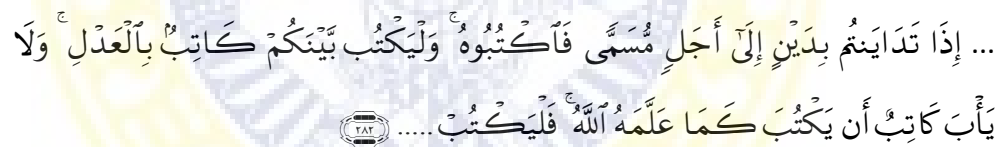 ... إِذَا تَدَايَنتُم بِدَيْنٍ إِلَىٰٓ أَجَلٍ مُّسَمًّى فَٱكْتُبُوهُ ۚ وَلْيَكْتُب بَّيْنَكُمْ كَاتِبٌۢ بِٱلْعَدْلِ ۚ وَلَا
يَأْبَ كَاتِبٌ أَن يَكْتُبَ كَمَا عَلَّمَهُ ٱللَّهُ ۚ فَلْيَكْتُبْ ..... ٢٨٢